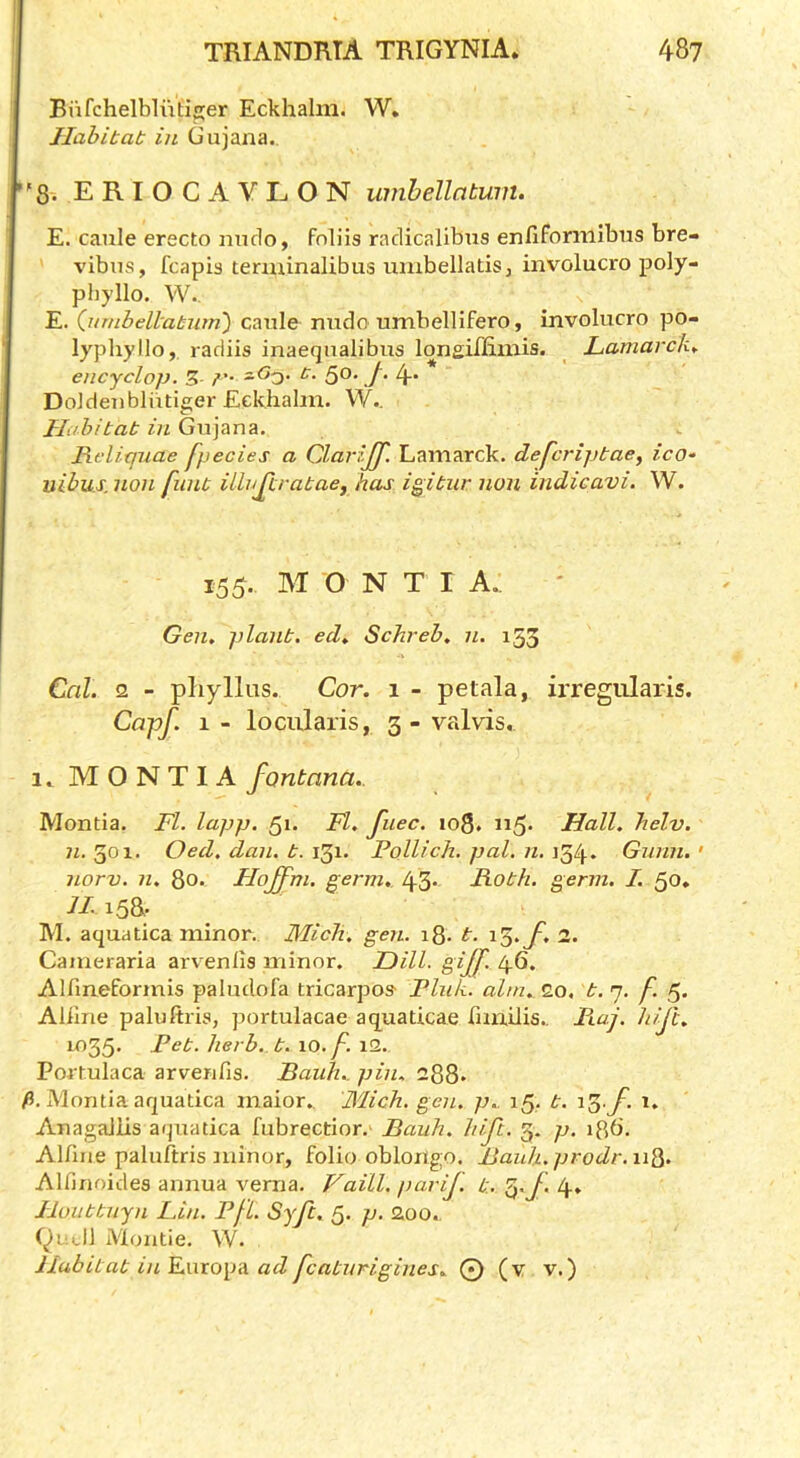 TRIANDRIA TRIGYNIA. 487
Büſchelblütiger Eckhalm. W.
Habitat in Gujana.
*8. ERIOCAVLON umbellatum.
E. caule erecto nudo, foliis radicalibus enſiformibus bre-
vibus, ſcapis terminalibus umbellatis, involucro poly-
phyllo. W.
E. (umbellatum) caule nudo umbellifero, involucro po-
lyphyllo, radiis inaequalibus longiſſimis. Lamarck.
encyclop. 3. p. 263. t. 50. f. 4. *
Doldenblütiger Eckhalm. W.
Habitat in Gujana.
Reliquae ſpecies a Clariſſ. Lamarck. deſcriptae, ico-
nibus non ſunt illuſtratae, has igitur non indicavi. W.
155. MONTIA.
Gen. plant. ed. Schreb. n. 133
Cal. 2 - phyllus. Cor. 1 - petala, irregularis.
Capſ. 1 - locularis, 3 - valvis.
1. MONTIA fontana.
Montia. Fl. lapp. 51. Fl. ſuec. 108. 115. Hall. helv.
n. 301. Oed. dan. t. 131. Pollich. pal. n. 134. Gunn.
norv. n. 80. Hoffm. germ. 43. Roth. germ. I. 50.
II. 158.
M. aquatica minor. Mich. gen. 18. t. 13. f. 2.
Cameraria arvenſis minor. Dill. giſſ. 46.
Alſineformis paludoſa tricarpos Pluk. alm. 20. t. 7. f. 5.
Alſine paluſtris, portulacae aquaticae ſimilis. Raj. hiſt.
1035. Pet. herb. t. 10. f. 12.
Portulaca arvenſis. Bauh. pin. 288.
β. Montia aquatica maior. Mich. gen. p. 15. t. 13. f. 1.
Anagallis aquatica ſubrectior. Bauh. hiſt. 3. p. 186.
Alſine paluſtris minor, folio oblongo. Bauh. prodr. 118.
Alſinoides annua verna. Vaill. pariſ. t. 3. f. 4.
Houttuyn Lin. Pfl. Syſt. 5. p. 200.
Quell Montie. W.
Habitat in Europa ad ſcaturigines. ⊙ (v. v.)